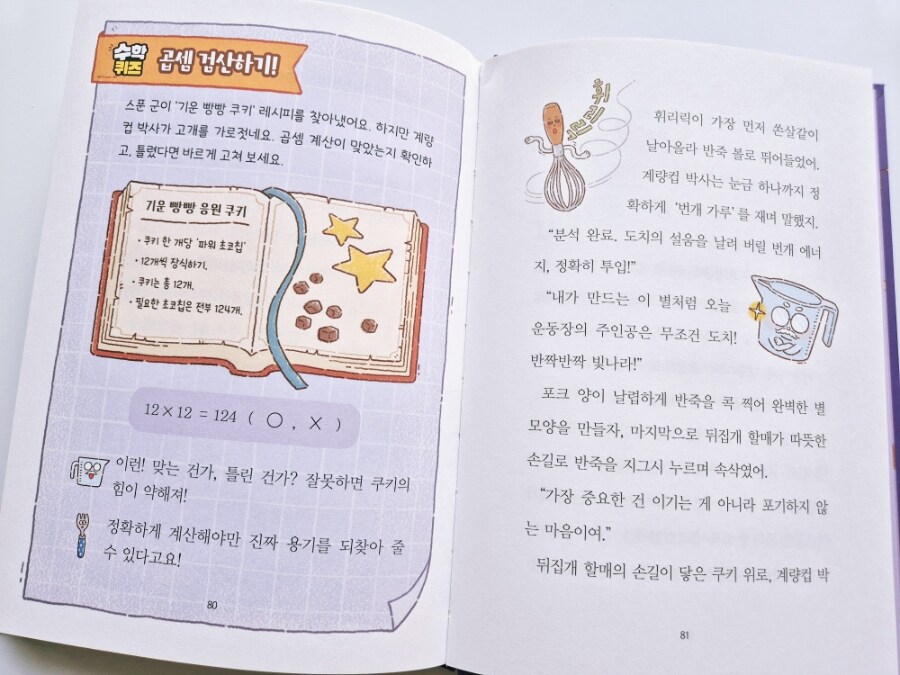 수학
퀴즈
곱셈 검산하기!
스푼 군이 '기운 빵빵 쿠키' 레시피를 찾아냈어요. 하지만 계량
컵 박사가 고개를 가로젓네요. 곱셈 계산이 맞았는지 확인하
고, 틀렸다면 바르게 고쳐 보세요.
기운 빵빵 응원 쿠키
• 쿠키 한 개당 '파워 초코칩'
• 12개씩 장식하기.
• 쿠키는 총 12개.
• 필요한 초코칩은 전부 124개.
12×12 = 124 ( ○ , × )
이런! 맞는 건가, 틀린 건가? 잘못하면 쿠키의
힘이 약해져!
정확하게 계산해야만 진짜 용기를 되찾아 줄
수 있다고요!
80
휘리릭
휘리릭이 가장 먼저 쏜살같이
날아올라 반죽 볼로 뛰어들었어.
계량컵 박사는 눈금 하나까지 정
확하게 '번개 가루'를 재며 말했지.
"분석 완료. 도치의 설움을 날려 버릴 번개 에너
지, 정확히 투입!"
"내가 만드는 이 별처럼 오늘
운동장의 주인공은 무조건 도치!
반짝반짝 빛나라!"
포크 양이 날렵하게 반죽을 콕 찍어 완벽한 별
모양을 만들자, 마지막으로 뒤집개 할매가 따뜻한
손길로 반죽을 지그시 누르며 속삭였어.
"가장 중요한 건 이기는 게 아니라 포기하지 않
는 마음이여."
뒤집개 할매의 손길이 닿은 쿠키 위로, 계량컵 박
81